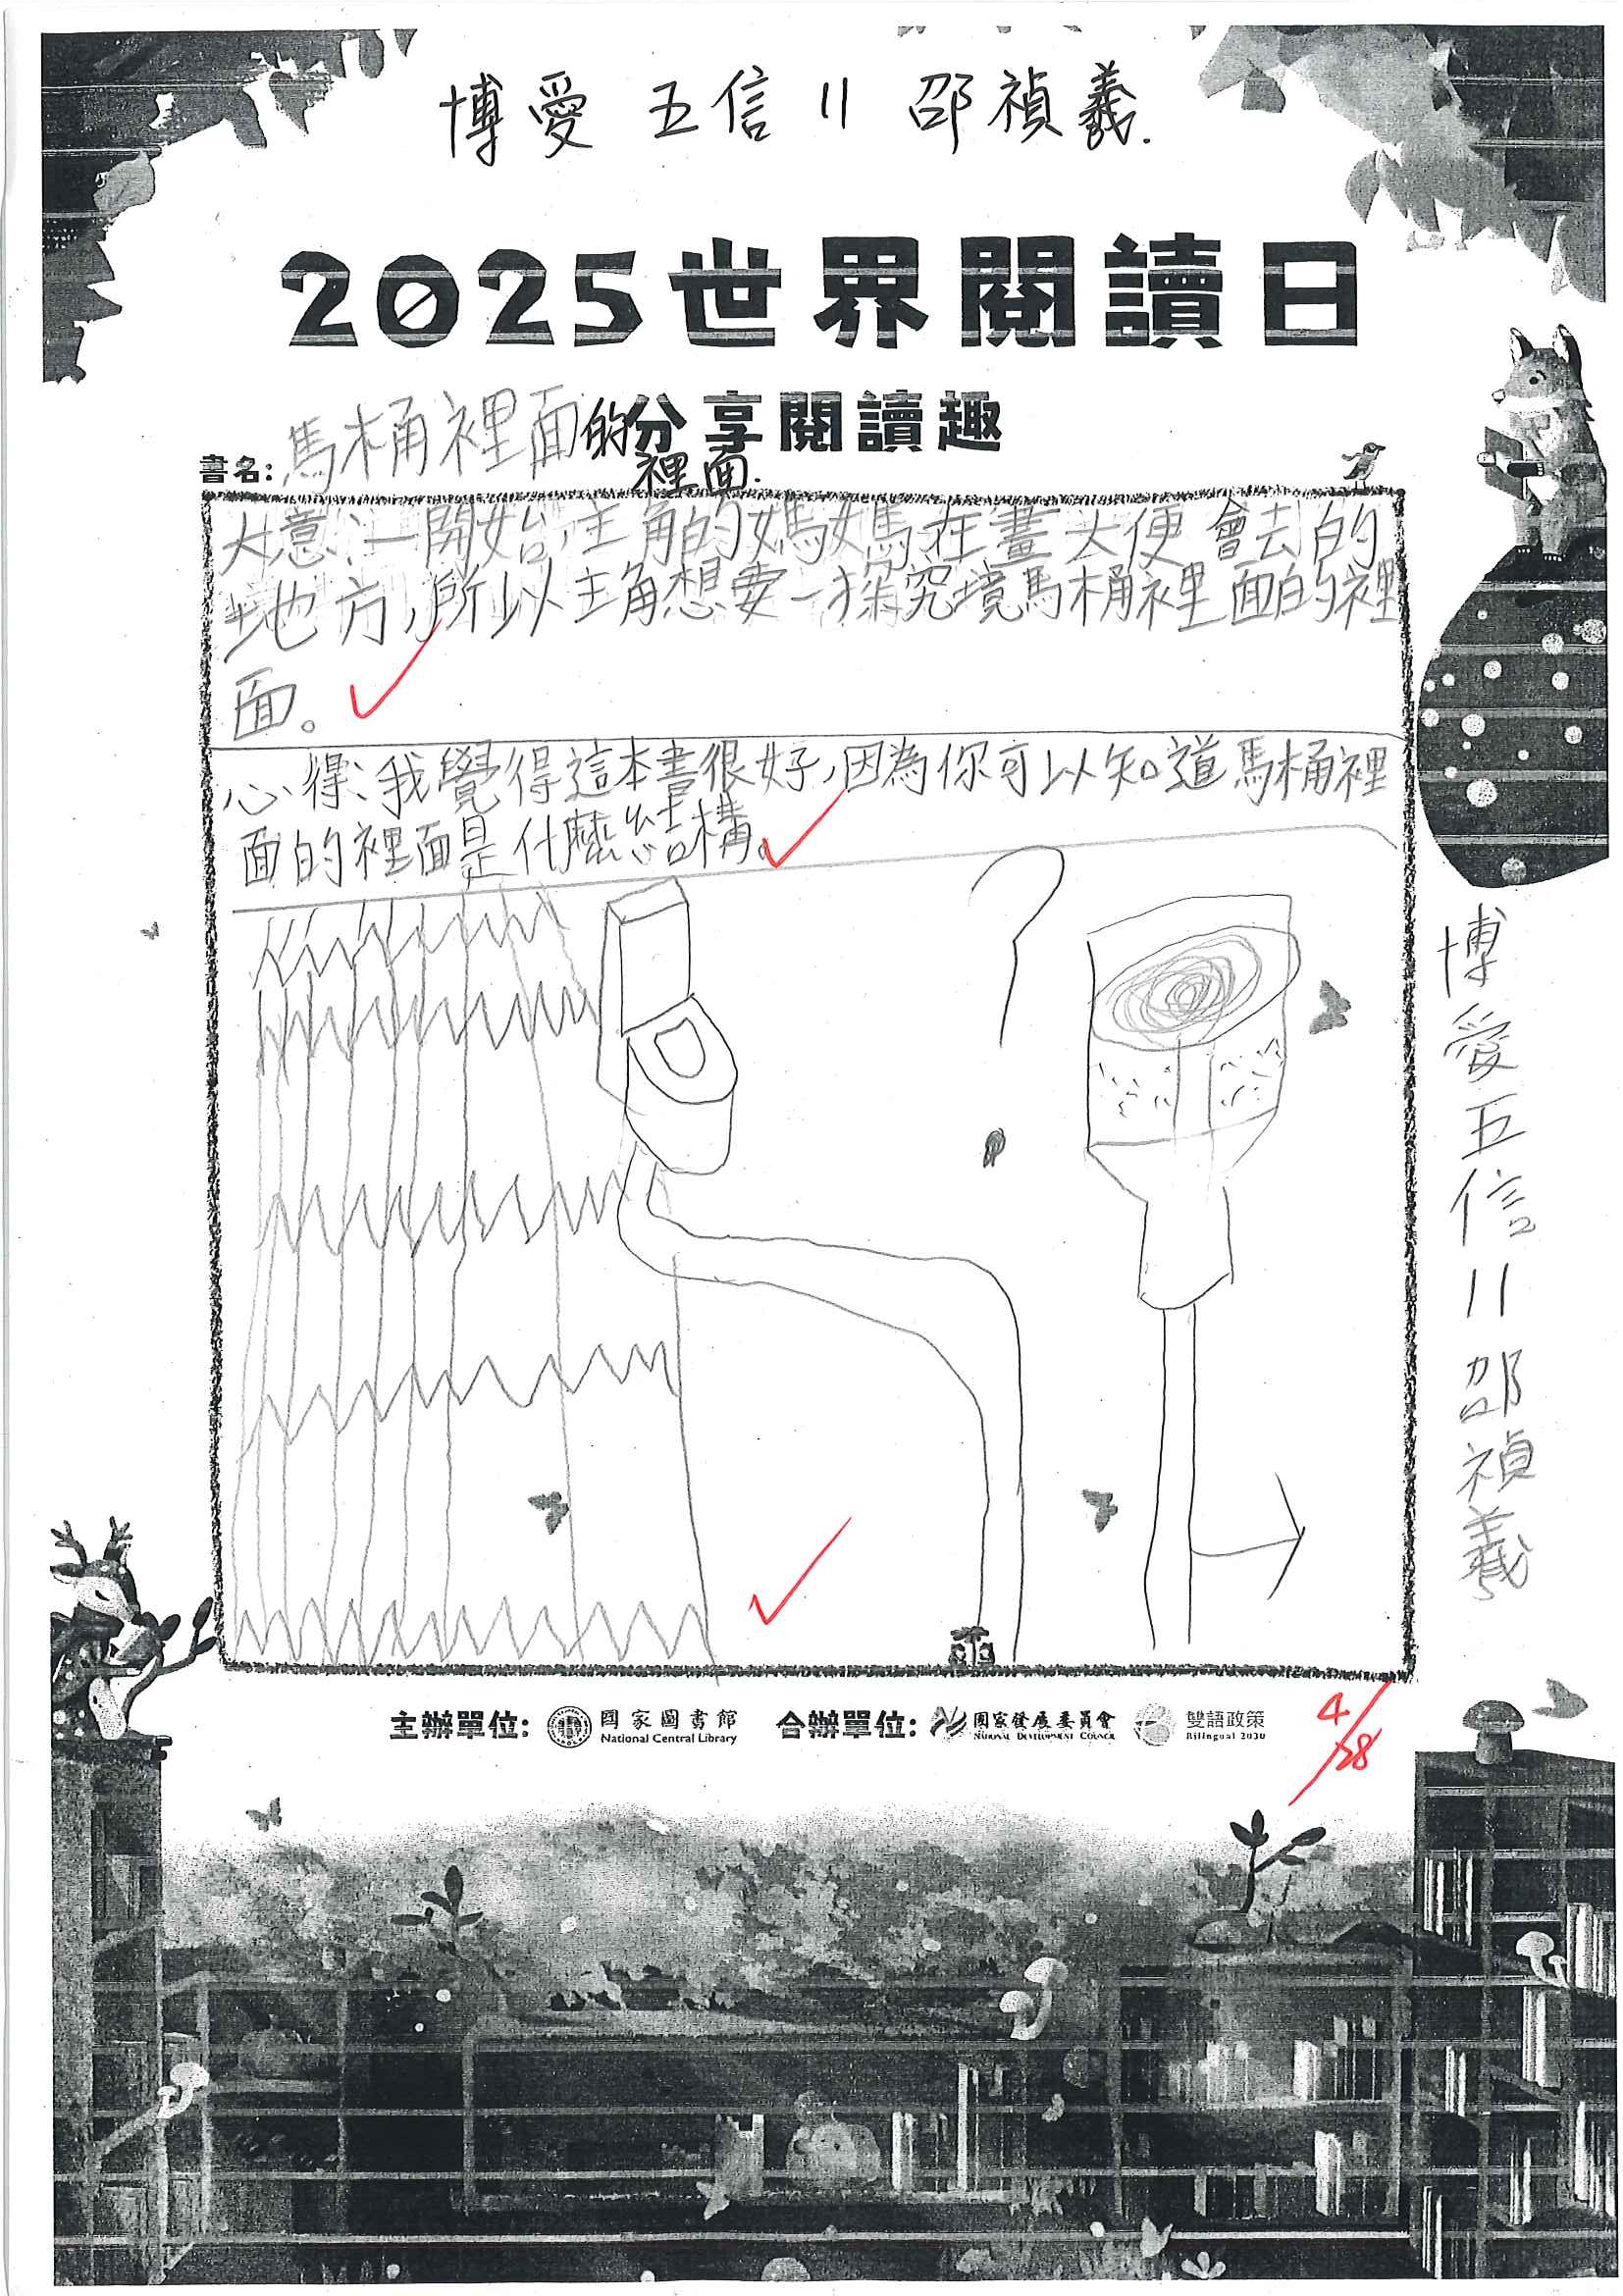 博愛 五信 11 邵禎羲.
2025世界閱讀日
分享閱讀趣
書名:馬桶裡面的
裡面.
大意:一開始,主角的媽媽在畫大便會去的
地方,所以主角想要一探究境馬桶裡面的裡
面。
心得:我覺得這本書很好,因為你可以知道馬桶裡
面的裡面是什麼結構。
博愛五信11邵禎羲
主辦單位: 國家圖書館 合辦單位: 國家發展委員會 雙語政策
National Central Library NATIONAL DEVELOPMENT COUNCIL Bilingual 2030
4/28